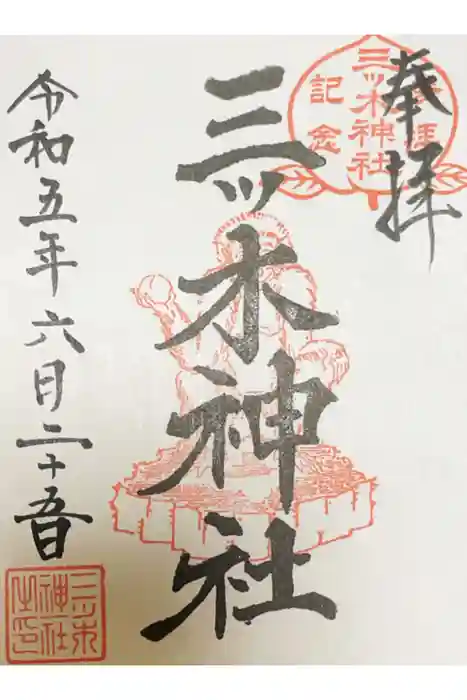 奉拝
参拝
三ツ木神社
記念
三ツ木神社
令和五年六月二十五日
三ツ木
神社
之印